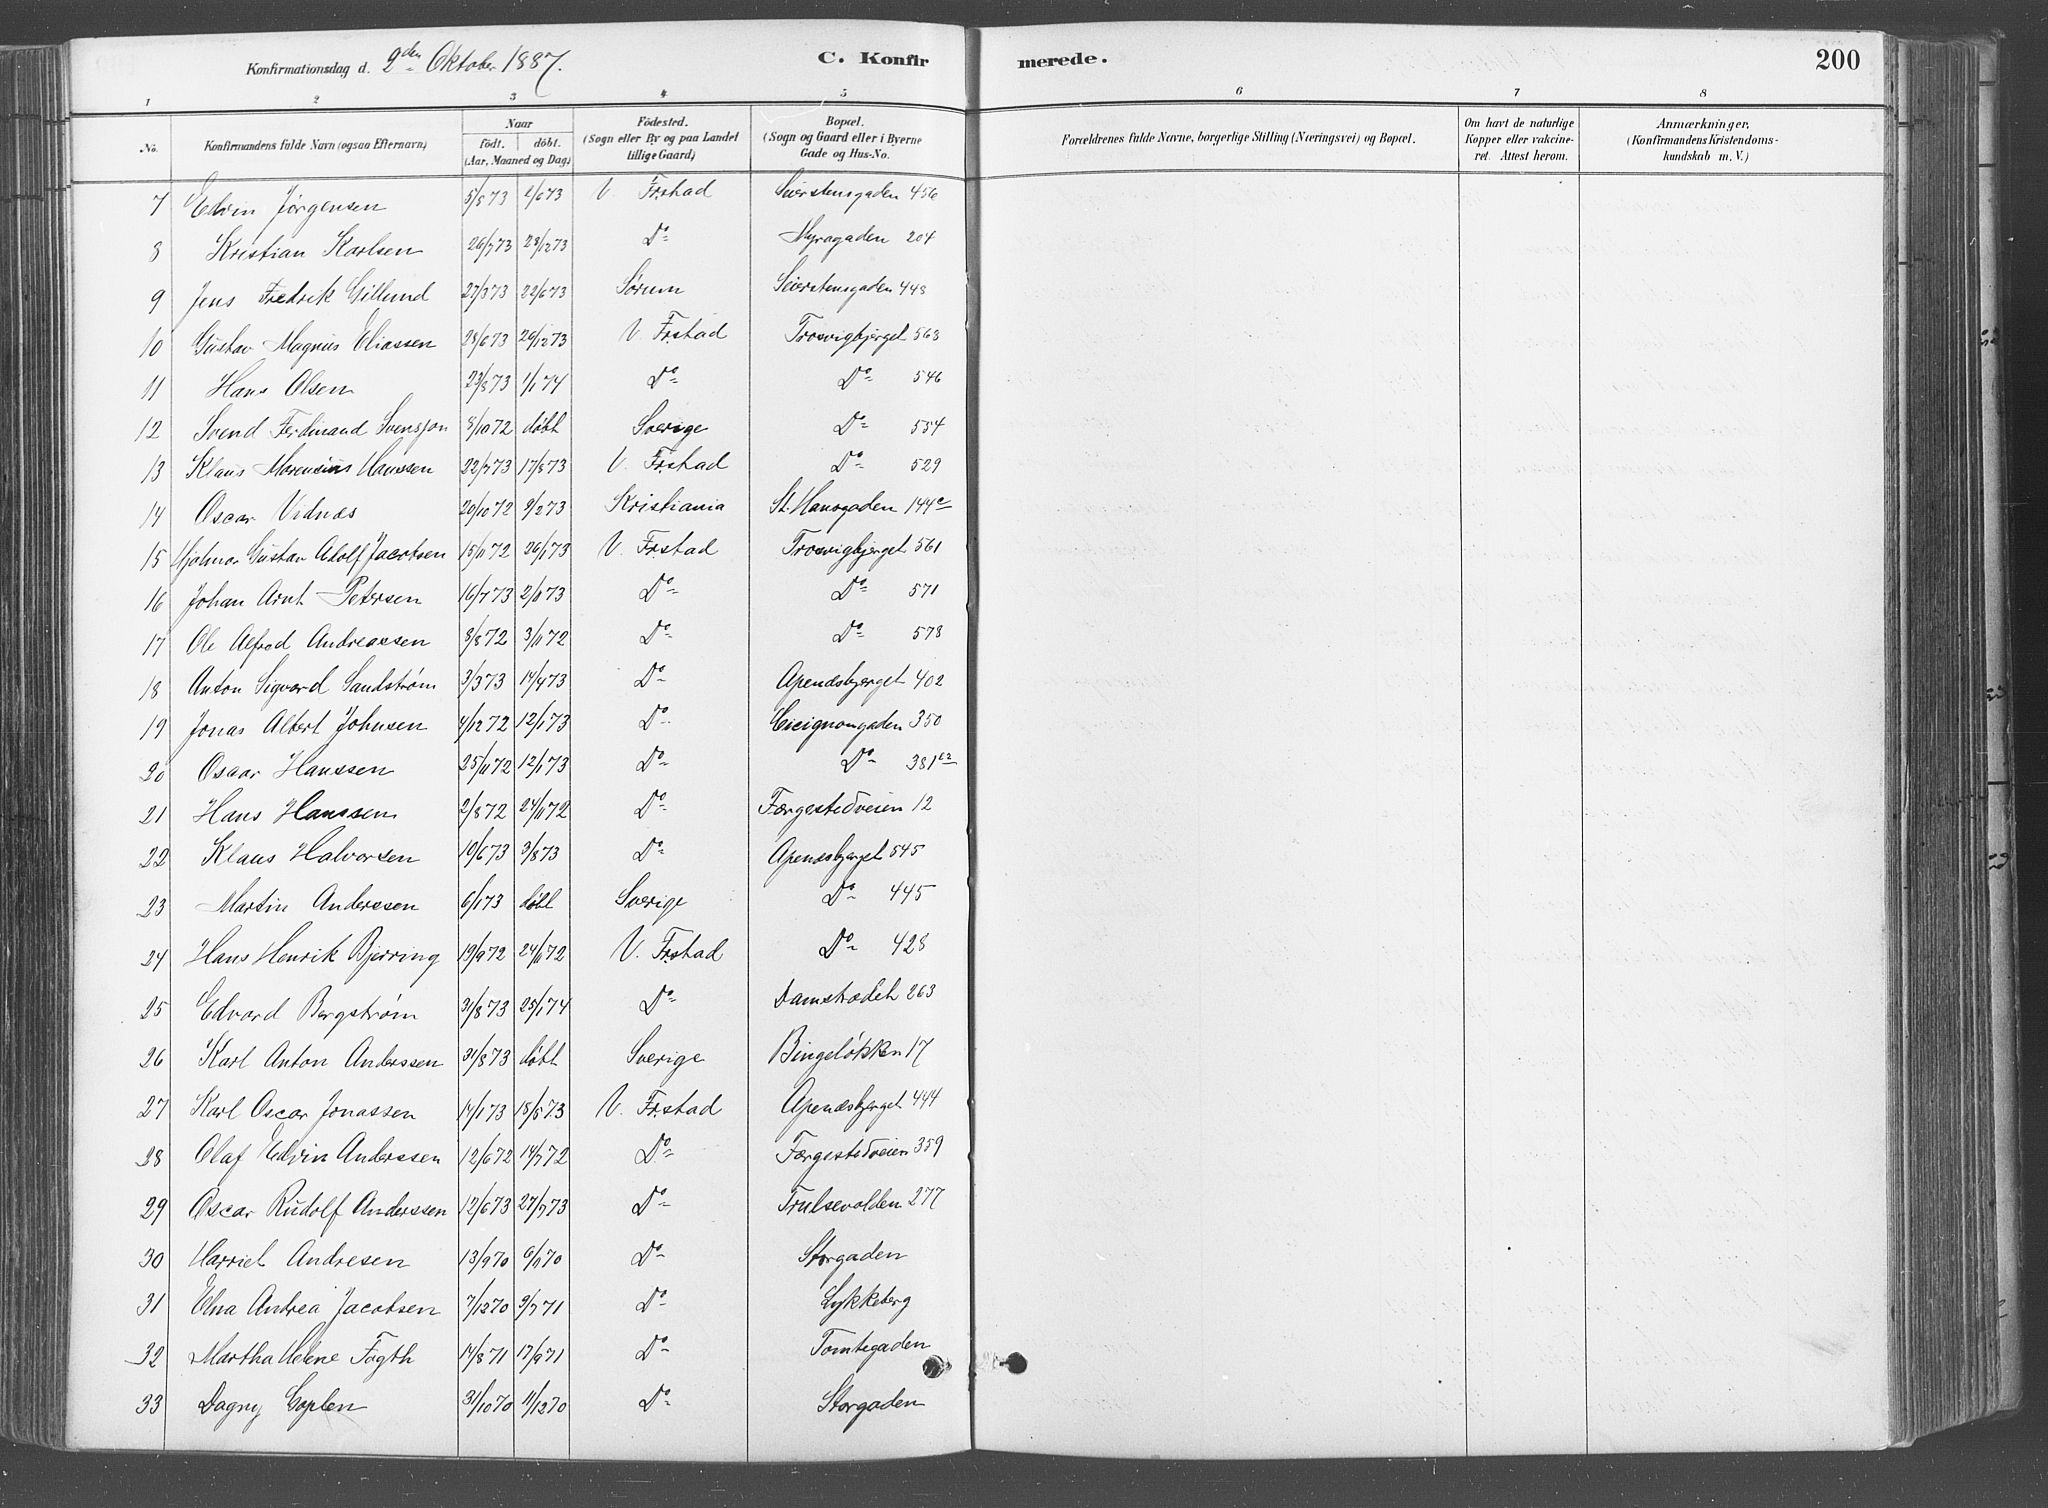 Konfirmationsdag d. 2den Oktober 1887. C. Konfirmerede. 200
1 2 3 4 5 6 7 8
No. Konfirmandens fulde Navn (ogsaa Efternavn) Naar födt. döbt. (Aar, Maaned og Dag) Födested. (Sogn eller By og paa Landet tillige Gaard) Bopæl. (Sogn og Gaard eller i Byerne Gade og Hus-No. Forældrenes fulde Navne, borgerlige Stilling (Næringsvei) og Bopæl. Om havt de naturlige Kopper eller vakcineret. Attest herom. Anmærkninger. (Konfirmandens Kristendomskundskab m. V.)
7 Edvin Jørgensen 5/8 73 1/6 73 V. Frstad Seierstensgaden 456
8 Kristian Karlsen 26/7 73 28/12 73 Do Myragaden 204
9 Jens Fredrik Gillund 27/3 73 22/6 73 Sørum Seierstensgaden 448
10 Gustav Magnus Eliassen 28/6 73 26/12 73 V. Frstad Trosvigbjerget 563
11 Hans Olsen 23/8 73 1/1 74 Do Do 546
12 Svend Ferdinand Svensson 8/10 72 döbt Sverige Do 554
13 Klaus Marensius Hanssen 22/7 73 17/8 73 V. Frstad Do 529
14 Oscar Vidnæs 20/10 72 9/2 73 Kristiania St. Hansgaden 144c
15 Hjalmar Gustav Adolf Jacobsen 15/11 72 26/1 73 V. Frstad Trosvigbjerget 561
16 Johan Arnt Petersen 16/7 73 2/11 73 Do Do 571
17 Ole Alfred Andreassen 8/8 72 3/11 72 Do Do 578
18 Anton Sigvard Sandstrøm 3/3 73 14/4 73 Do Apenæsbjerget 402
19 Jonas Albert Johnsen 4/12 72 12/1 73 Do Cicignongaden 350
20 Oscar Hanssen 25/11 72 12/1 73 Do Do 381
21 Hans Hanssen 2/8 72 24/11 72 Do Færgestedveien 12
22 Klaus Halvorsen 19/6 73 3/8 73 Do Apenæsbjerget 545
23 Martin Anderssen 6/1 73 döbt Sverige Do 445
24 Hans Henrik Bjerring 19/9 72 24/11 72 V. Frstad Do 428
25 Edvard Bergstrøm 31/8 73 25/1 74 Do Damstrædet 263
26 Karl Anton Anderssen 31/8 73 döbt Sverige Bingeløkken 17
27 Karl Oscar Jonassen 14/1 73 18/5 73 V. Frstad Apenæsbjerget 444
28 Olaf Edvin Anderssen 12/6 72 14/7 72 Do Færgestedveien 359
29 Oscar Rudolf Anderssen 12/6 73 27/7 73 Do Trulsevolden 277
30 Harriet Andresen 13/9 70 6/11 70 Do Storgaden
31 Elna Andrea Jacobsen 7/12 70 9/7 71 Do Lykkeberg
32 Martha Helene Fogth 14/8 71 17/9 71 Do Tomtegaden
33 Dagny Coplen 31/10 70 11/12 70 Do Storgaden